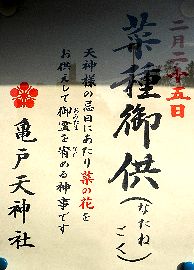 二月二十五日
菜種御供(なたねごく)
天神様の忌日にあたり菜の花を
お供えして御霊を宥める神事です
亀戸天神社